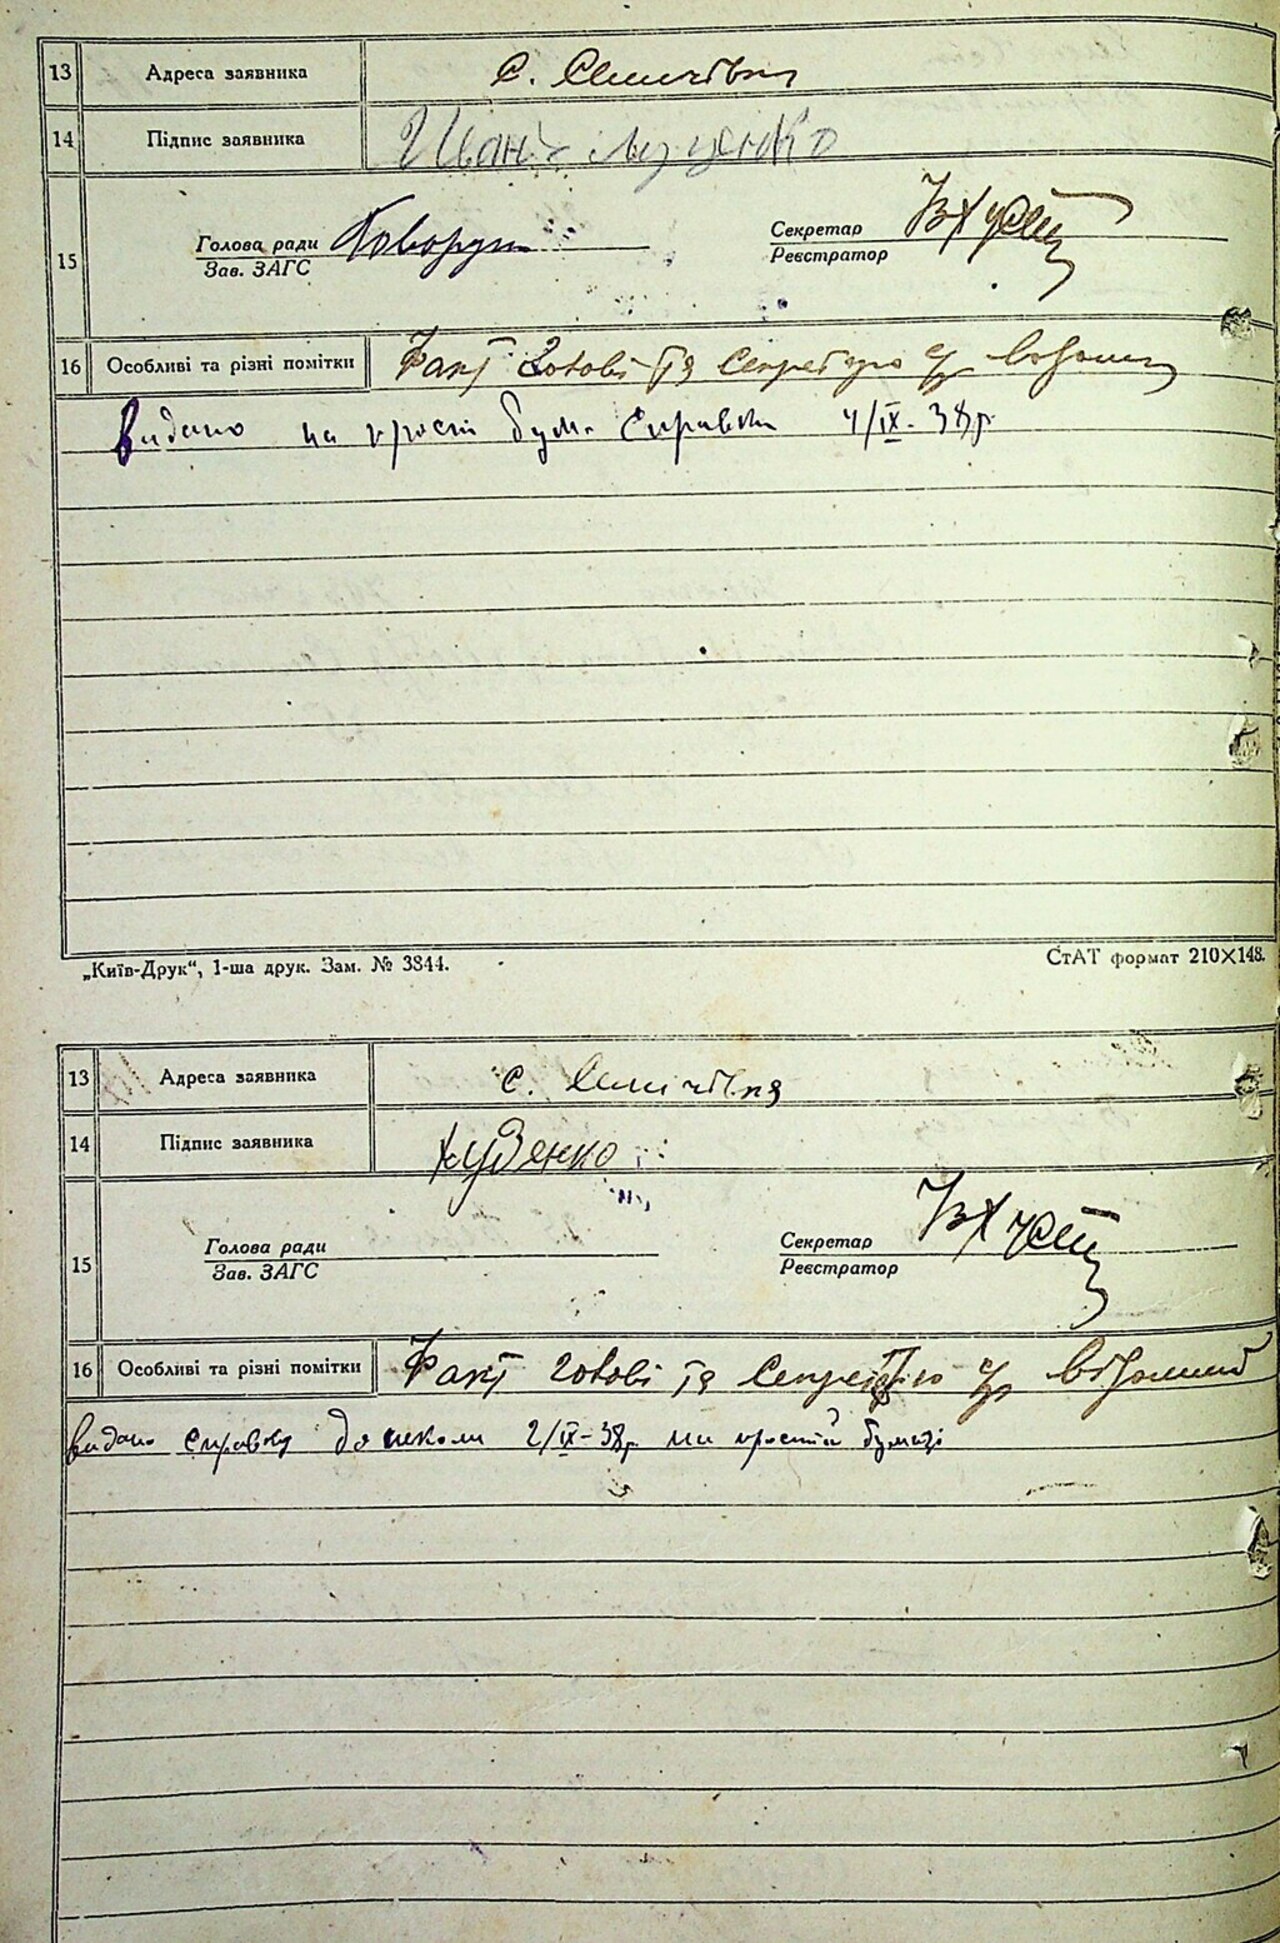 13 Адреса заявника с. Семичівка
14 Підпис заявника Иван Луценко
15 Голова ради Говорун Секретар
Зав. ЗАГС Реєстратор
16 Особливі та різні помітки Факт голові та секретарю с/р відомий
видано на прост бум. справка 4/IX-38р.
„Київ-Друк“, 1-ша друк. Зам. № 3344.
СтАТ формат 210×148.
13 Адреса заявника с. Семичівка
14 Підпис заявника Кудэнко
15 Голова ради Секретар
Зав. ЗАГС Реєстратор
16 Особливі та різні помітки Факт голові та секретарю с/р відомий
видано справку до школи 2/IX-38р. на простій бумазі